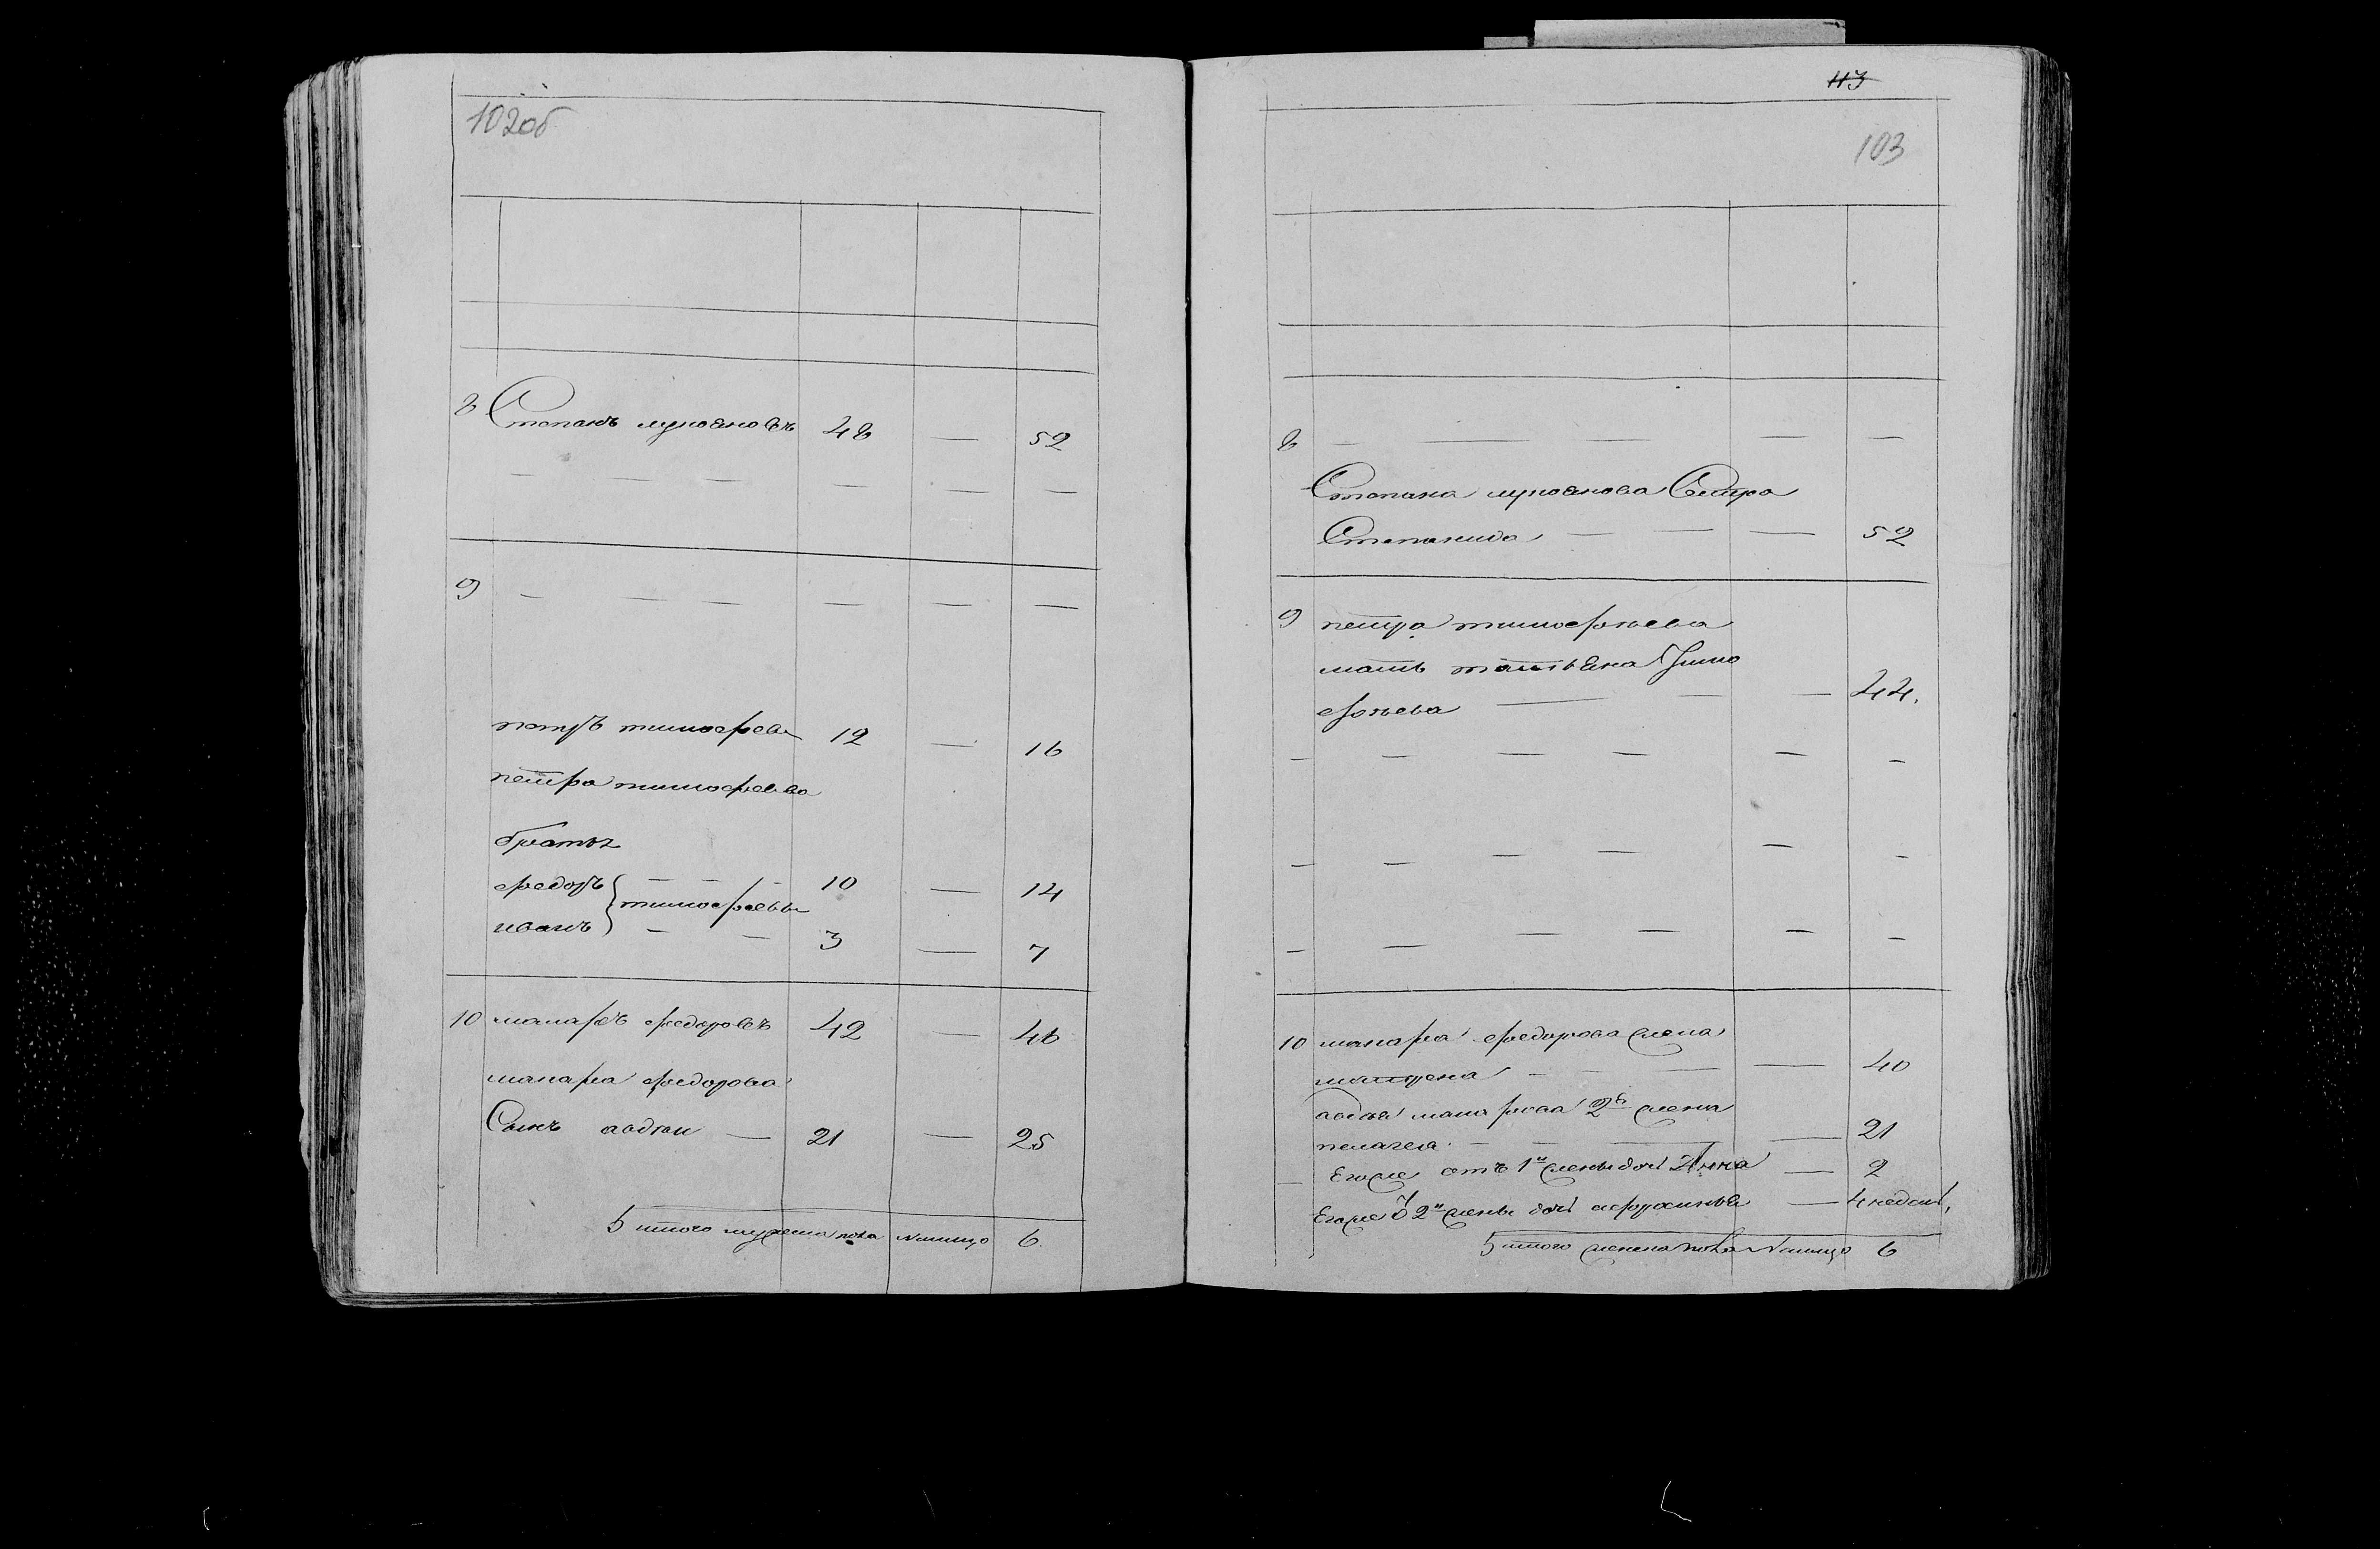 102об
8 Степанъ лукьяновъ 48 — 52
— — — — — —
9 — — — — — —
петръ тимофеевъ 12 — 16
петра тимофеева
братья
федоръ — — — 10 — 14
тимофеевы
иванъ — — 3 — 7
10 макаръ федоровъ 42 — 46
макара федорова
Сынъ авдѣи — 21 — 25
итого мужеска пола налицо 6
113
103
8 — — — — —
Степана лукьянова Сестра
Степанида — — — 52
9 петра тимофѣева
мать татьяна Тимо
фѣева — — — 44.
— — — — — —
— — — — — —
— — — — — —
10 макара федорова жена
матрена — — — — 40
авдѣя макарова 2я жена
пелагея — — — — 21
— Егоже отъ 1й жены дочь Анна — 2
Егоже о 2й жены дочь афросинья — 4 недели,
итого женска пола Налицо 6